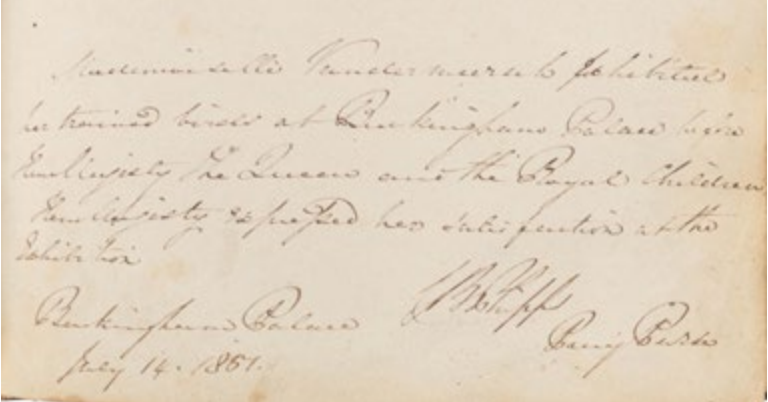 Mademoiselle Vandermeersch Exhibited
her trained birds at Buckingham Palace before
Her Majesty The Queen and the Royal Children
Her Majesty expressed her satisfaction at the
Exhibition
C B Phipps
Buckingham Palace
Privy Purse
July 14. 1851.